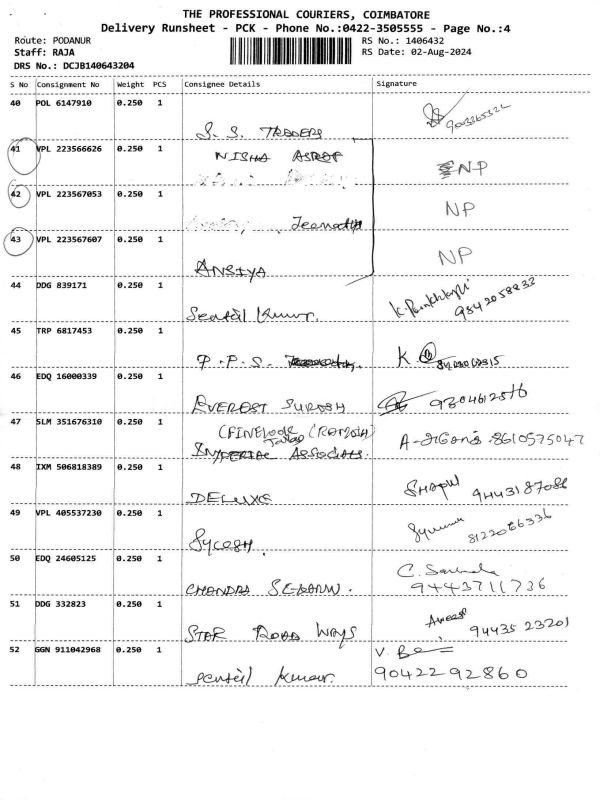 THE PROFESSIONAL COURIERS, COIMBATORE
Delivery Runsheet - PCK - Phone No.:0422-3505555 - Page No.:4
Route: PODANUR
RS No.: 1406432
Staff: RAJA
RS Date: 02-Aug-2024
DRS No.: DCJB140643204
S No Consignment No Weight PCS Consignee Details Signature
40 POL 6147910 0.250 1
S. S. TRADERS
41 VPL 223566626 0.250 1 NISHA NP
42 VPL 223567053 0.250 1 NP
43 VPL 223567607 0.250 1 NP
ANSIYA
44 DDG 839171 0.250 1
Senthil Kumar. 9842058832
45 TRP 6817453 0.250 1
P. P. S. K.
46 EDQ 16000339 0.250 1
EVEREST SURESH
47 SLM 351676310 0.250 1 (FINELOOK
ASSOCIATES. 8610575047
48 IXM 506818389 0.250 1
DELUXE 9443187086
49 VPL 405537230 0.250 1
8122066336
50 EDQ 24605125 0.250 1 C.
CHANDRA SEKARAN. 9443711736
51 DDG 332823 0.250 1
STAR ROAD WAYS 94435 23201
52 GGN 911042968 0.250 1 V.
Senthil Kumar. 90422 92860